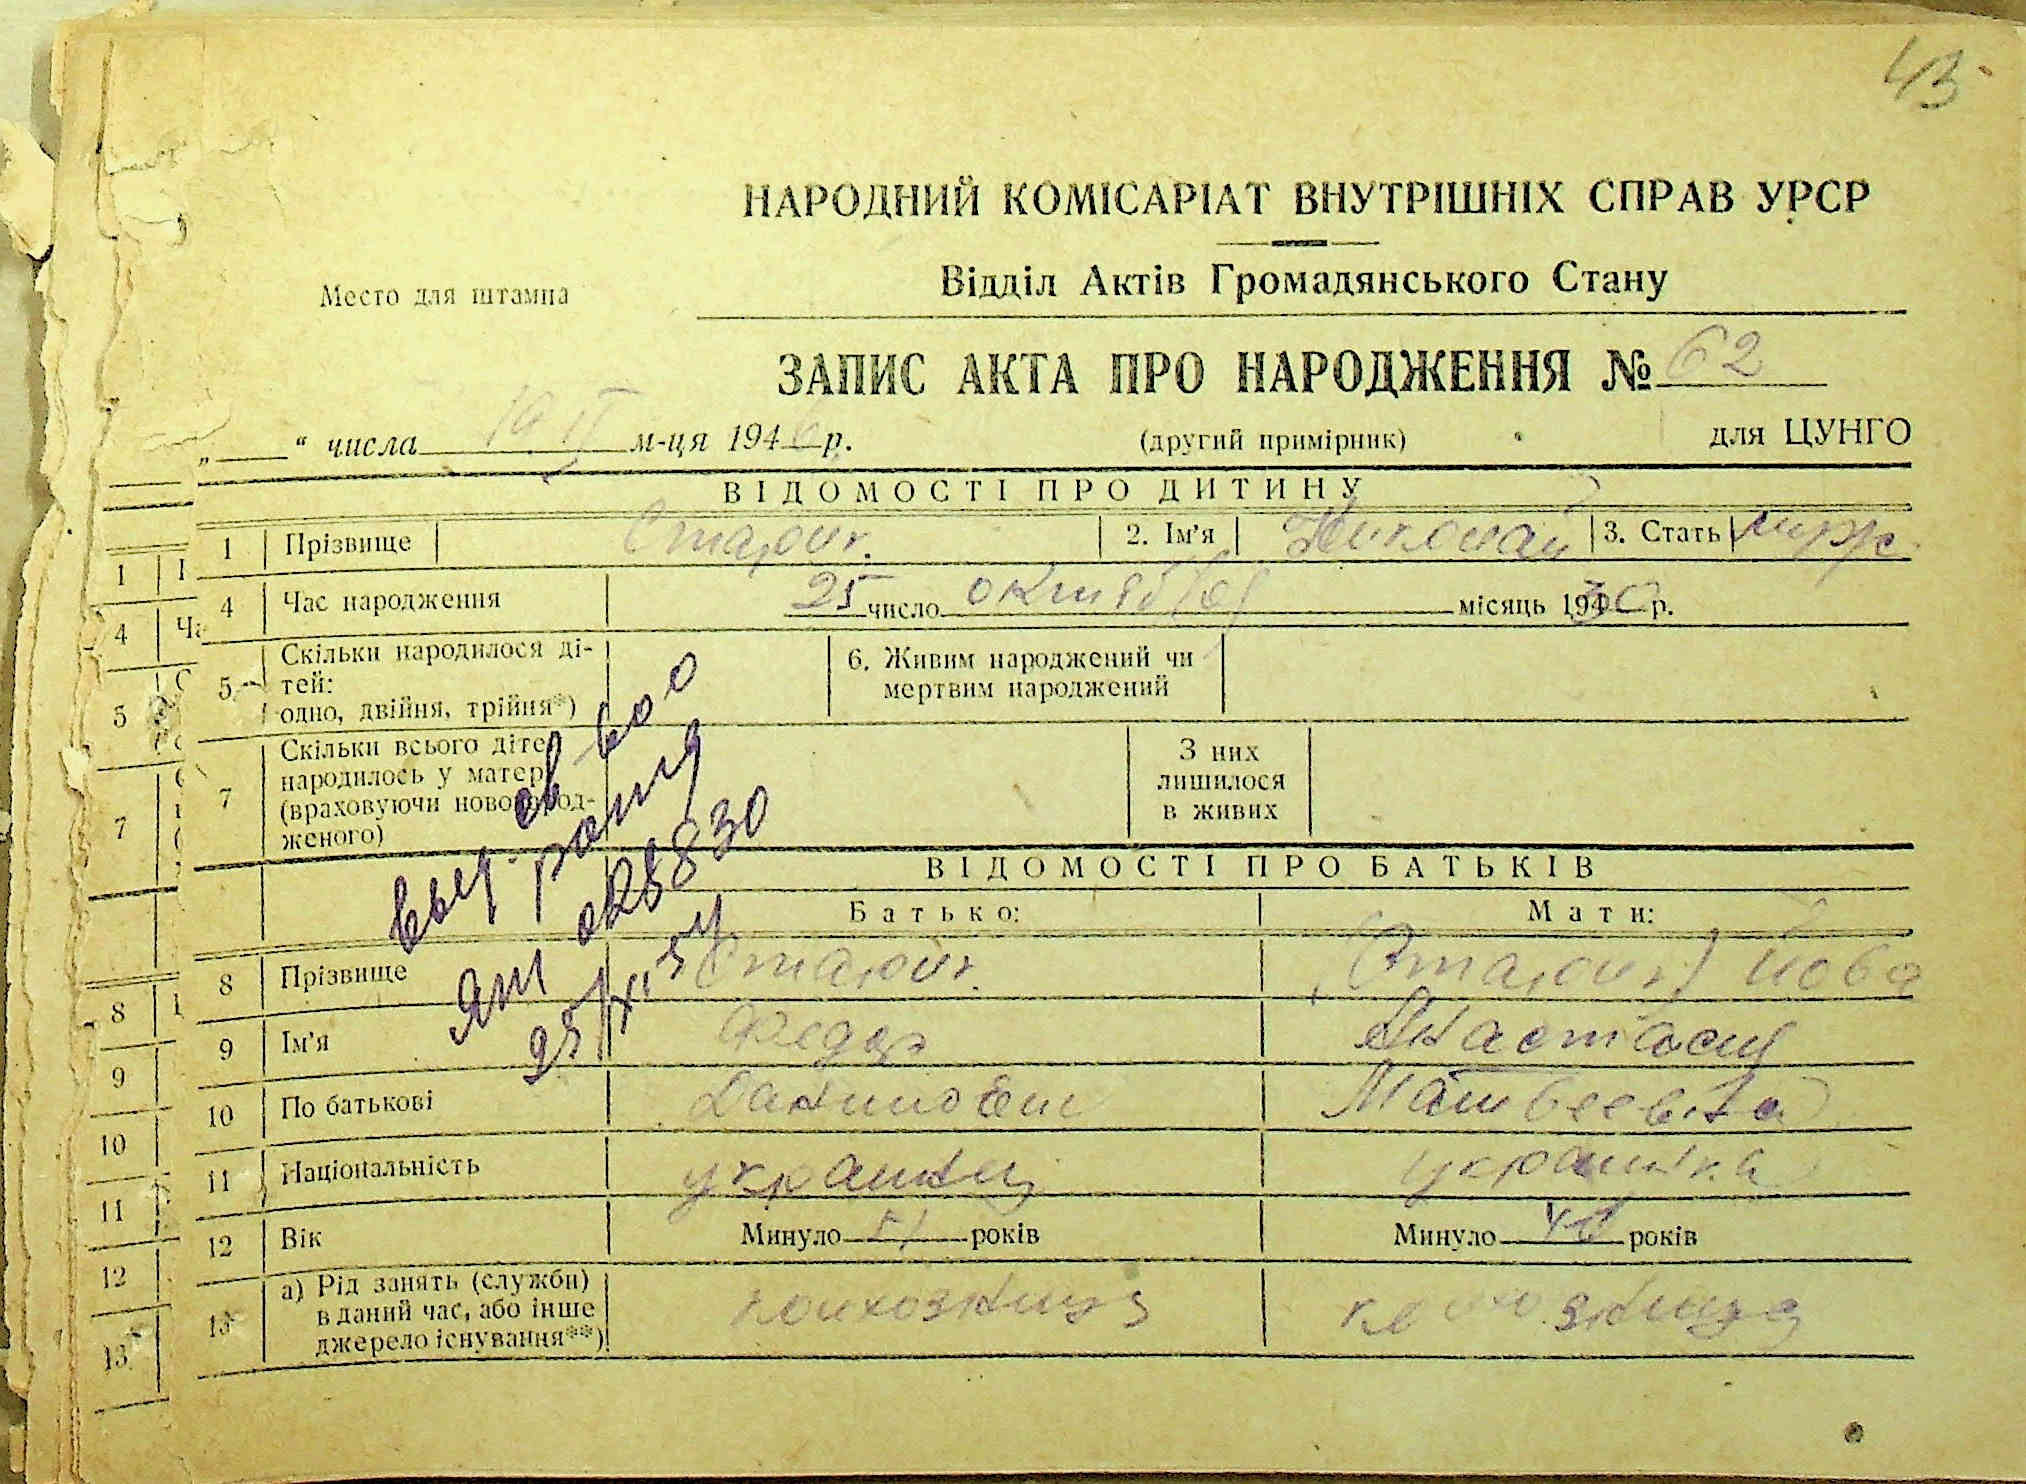 43
НАРОДНИЙ КОМІСАРІАТ ВНУТРІШНІХ СПРАВ УРСР
Место для штампа
Відділ Актів Громадянського Стану
ЗАПИС АКТА ПРО НАРОДЖЕННЯ № 62
„ “ числа 19 м-ця 194 р.
(другий примірник)
для ЦУНГО
ВІДОМОСТІ ПРО ДИТИНУ
1 Прізвище 2. Ім'я Николай 3. Стать муж.
4 Час народження 25 число октября місяць 1930 р.
5 Скільки народилося дітей: одно, двійня, трійня*)
6. Живим народжений чи мертвим народжений
7 Скільки всього дітей народилось у матері (враховуючи новонародженого)
З них лишилося в живих
ВІДОМОСТІ ПРО БАТЬКІВ
Батько: Мати:
8 Прізвище
9 Ім'я Федор Анастасия
10 По батькові Данилович Матвеевна
11 Національність украинец украинка
12 Вік Минуло 51 років Минуло років
13 а) Рід занять (служби) в даний час, або інше джерело існування**)
выд. св во
028830
1
4
5
7
8
9
10
11
12
13